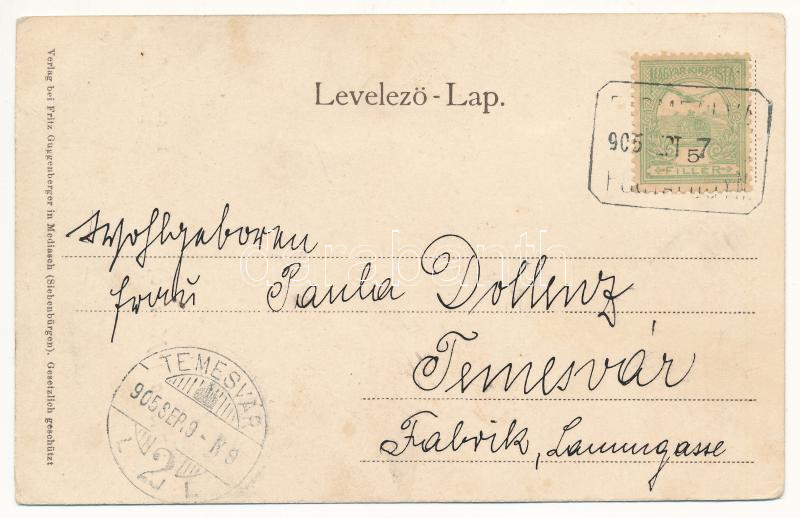 Levelezö-Lap.
MAGYAR KIR. POSTA
5
FILLER
905 7
Wohlgeboren
Frau Paula Dollenz
Temesvár
Fabrik,
TEMESVÁR
905 SEP. 9 - N 9
2
Verlag bei Fritz Guggenberger in Mediasch (Siebenbürgen). Gesetzlich geschützt
darabanth